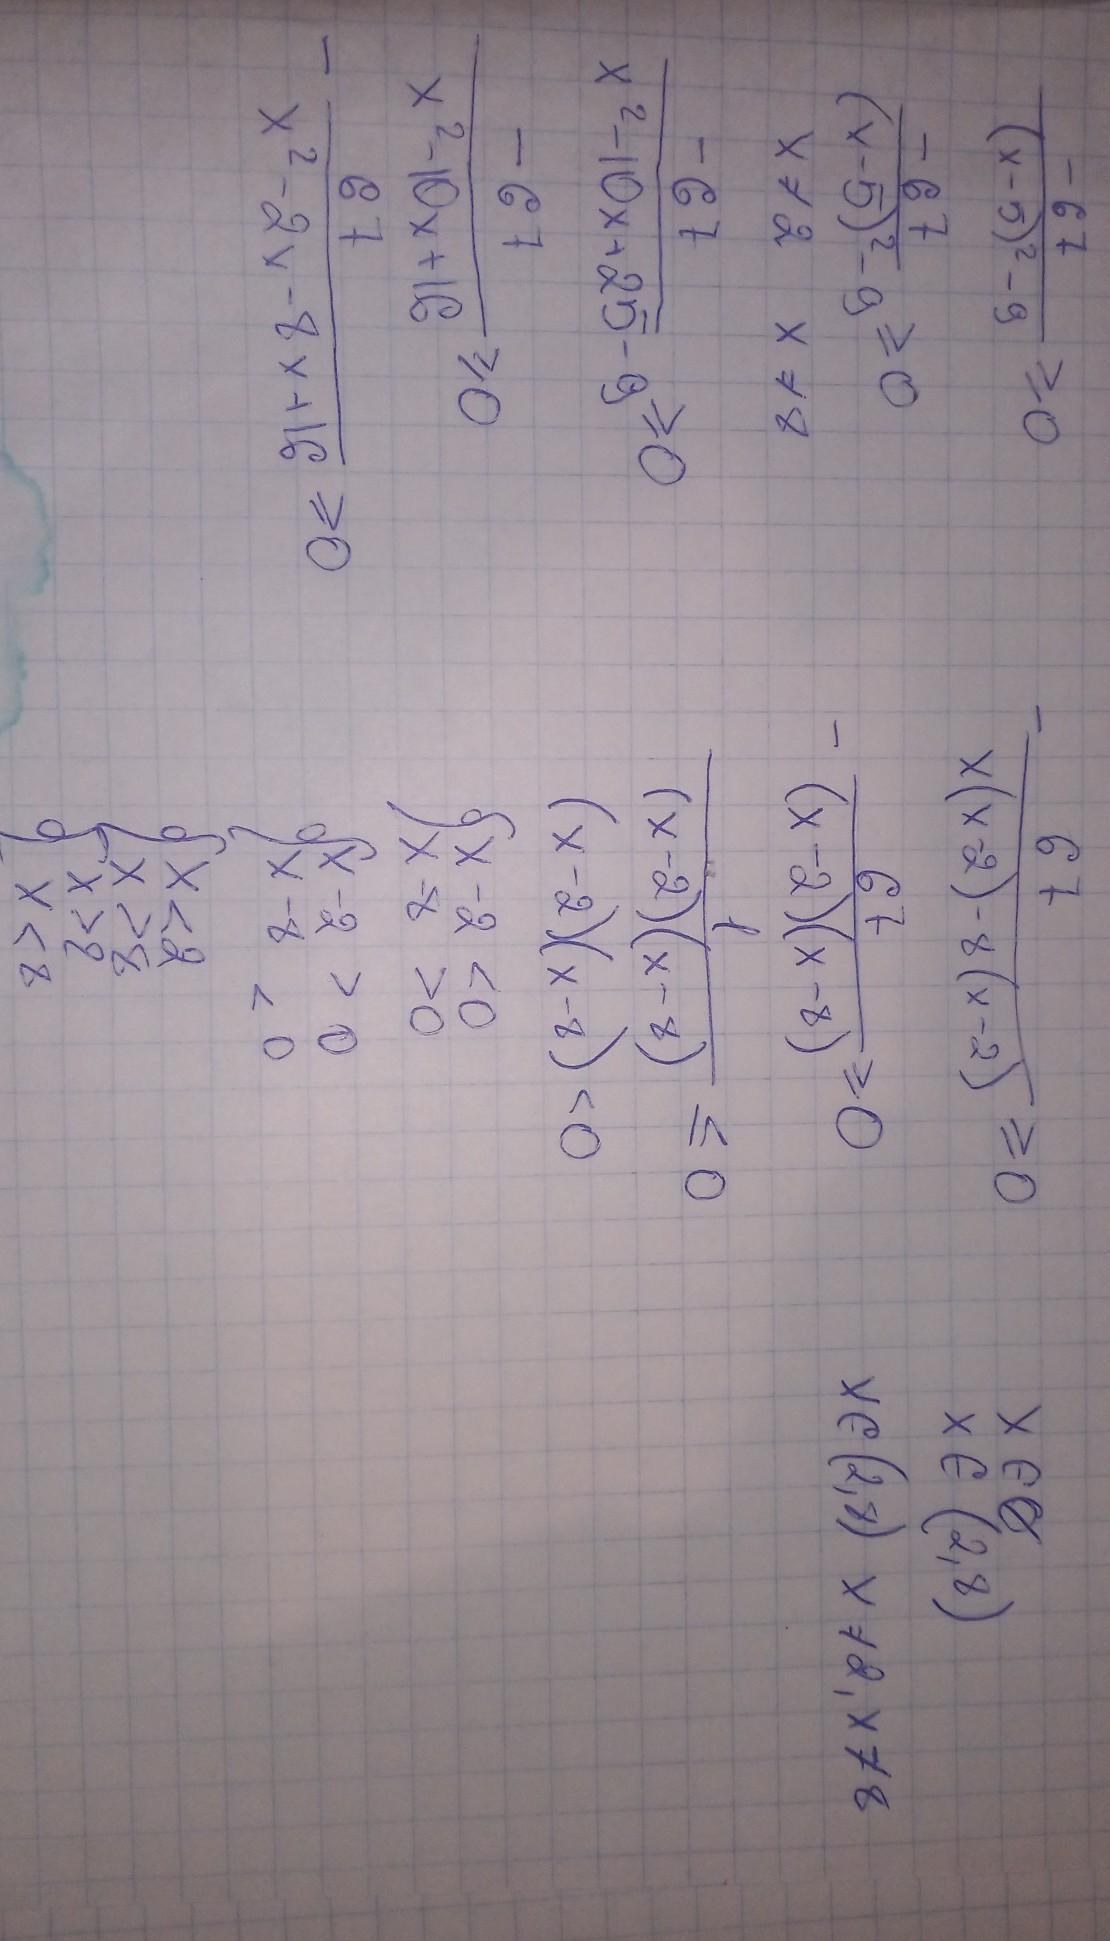 -67
(x-5)²-9 ≥0
-67
(x-5)²-9 ≥0
x≠2 x≠8
-67
x²-10x+25-9 ≥0
-67
x²-10x+16 ≥0
-67
x²-2x-8x+16 ≥0
-67
x(x-2)-8(x-2) ≥0
-67
(x-2)(x-8) ≥0
1
(x-2)(x-8) ≤0
(x-2)(x-8)<0
{x-2<0
x-8>0
{x-2>0
x-8<0
{x<2
x>8
{x>2
x<8
x∈∅
x∈(2,8)
x∈(2,8) x≠2, x≠8